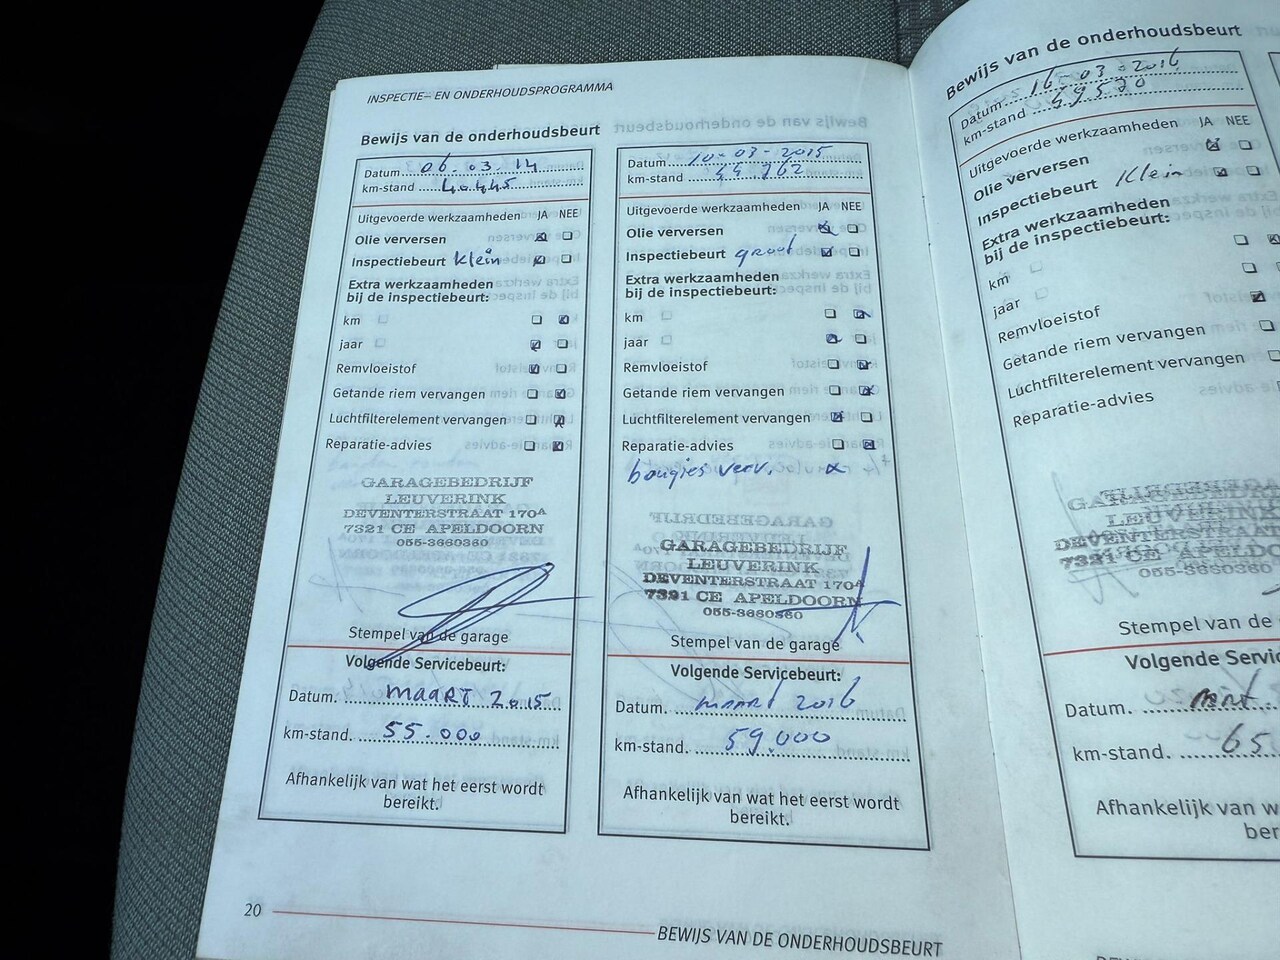 INSPECTIE- EN ONDERHOUDSPROGRAMMA
Bewijs van de onderhoudsbeurt
Datum 06.03.14
km-stand 40.445
Uitgevoerde werkzaamheden JA NEE
Olie verversen
Inspectiebeurt klein
Extra werkzaamheden
bij de inspectiebeurt:
km
jaar
Remvloeistof
Getande riem vervangen
Luchtfilterelement vervangen
Reparatie-advies
GARAGEBEDRIJF
LEUVERINK
DEVENTERSTRAAT 170A
7321 CE APELDOORN
055-3660360
Stempel van de garage
Volgende Servicebeurt:
Datum. MAART 2015
km-stand. 55.000
Afhankelijk van wat het eerst wordt
bereikt.
Datum 10-03-2015
km-stand 44.762
Uitgevoerde werkzaamheden JA NEE
Olie verversen
Inspectiebeurt groot
Extra werkzaamheden
bij de inspectiebeurt:
km
jaar
Remvloeistof
Getande riem vervangen
Luchtfilterelement vervangen
Reparatie-advies
bougies verv.
GARAGEBEDRIJF
LEUVERINK
DEVENTERSTRAAT 170A
7321 CE APELDOORN
055-3660360
Stempel van de garage
Volgende Servicebeurt:
Datum. maart 2016
km-stand. 59.000
Afhankelijk van wat het eerst wordt
bereikt.
20
BEWIJS VAN DE ONDERHOUDSBEURT
Bewijs van de onderhoudsbeurt
Datum 16-03-2016
km-stand 49570
Uitgevoerde werkzaamheden JA NEE
Olie verversen
Inspectiebeurt Klein
Extra werkzaamheden
bij de inspectiebeurt:
km
jaar
Remvloeistof
Getande riem vervangen
Luchtfilterelement vervangen
Reparatie-advies
LEUVERINK
DEVENTERSTRAAT
7321 CE APELDO
055-3660360
Stempel van de
Volgende Servic
Datum.
km-stand. 65.
Afhankelijk van w
ber